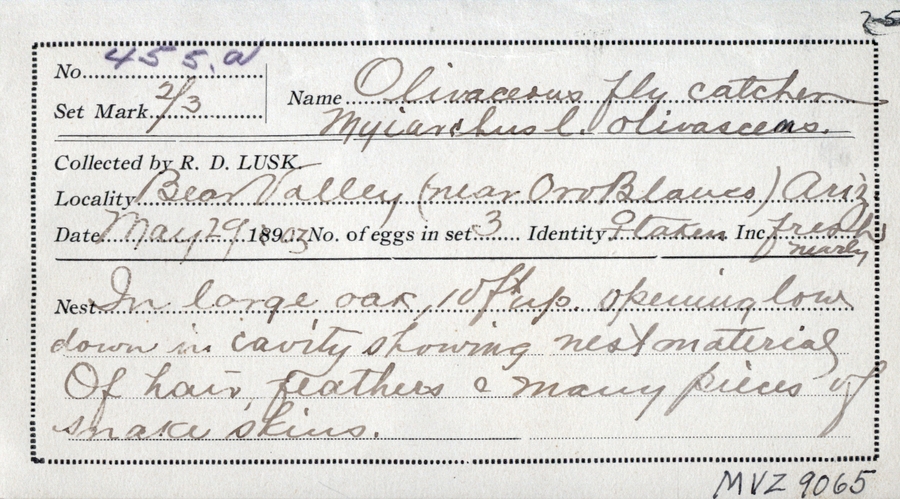 25
No. 455.a
Set Mark 2/3
Name Olivaceous fly catcher
Myiarchus l. olivascens.
Collected by R. D. LUSK.
Locality Bear Valley (near Oro Blanco) Ariz
Date May 29 1893 03 No. of eggs in set 3 Identity ♀ taken Inc. fresh
nearly
Nest In large oak, 10 ft up. opening low
down in cavity showing nest material
Of hair, feathers & many pieces of
snake skins.
MVZ 9065